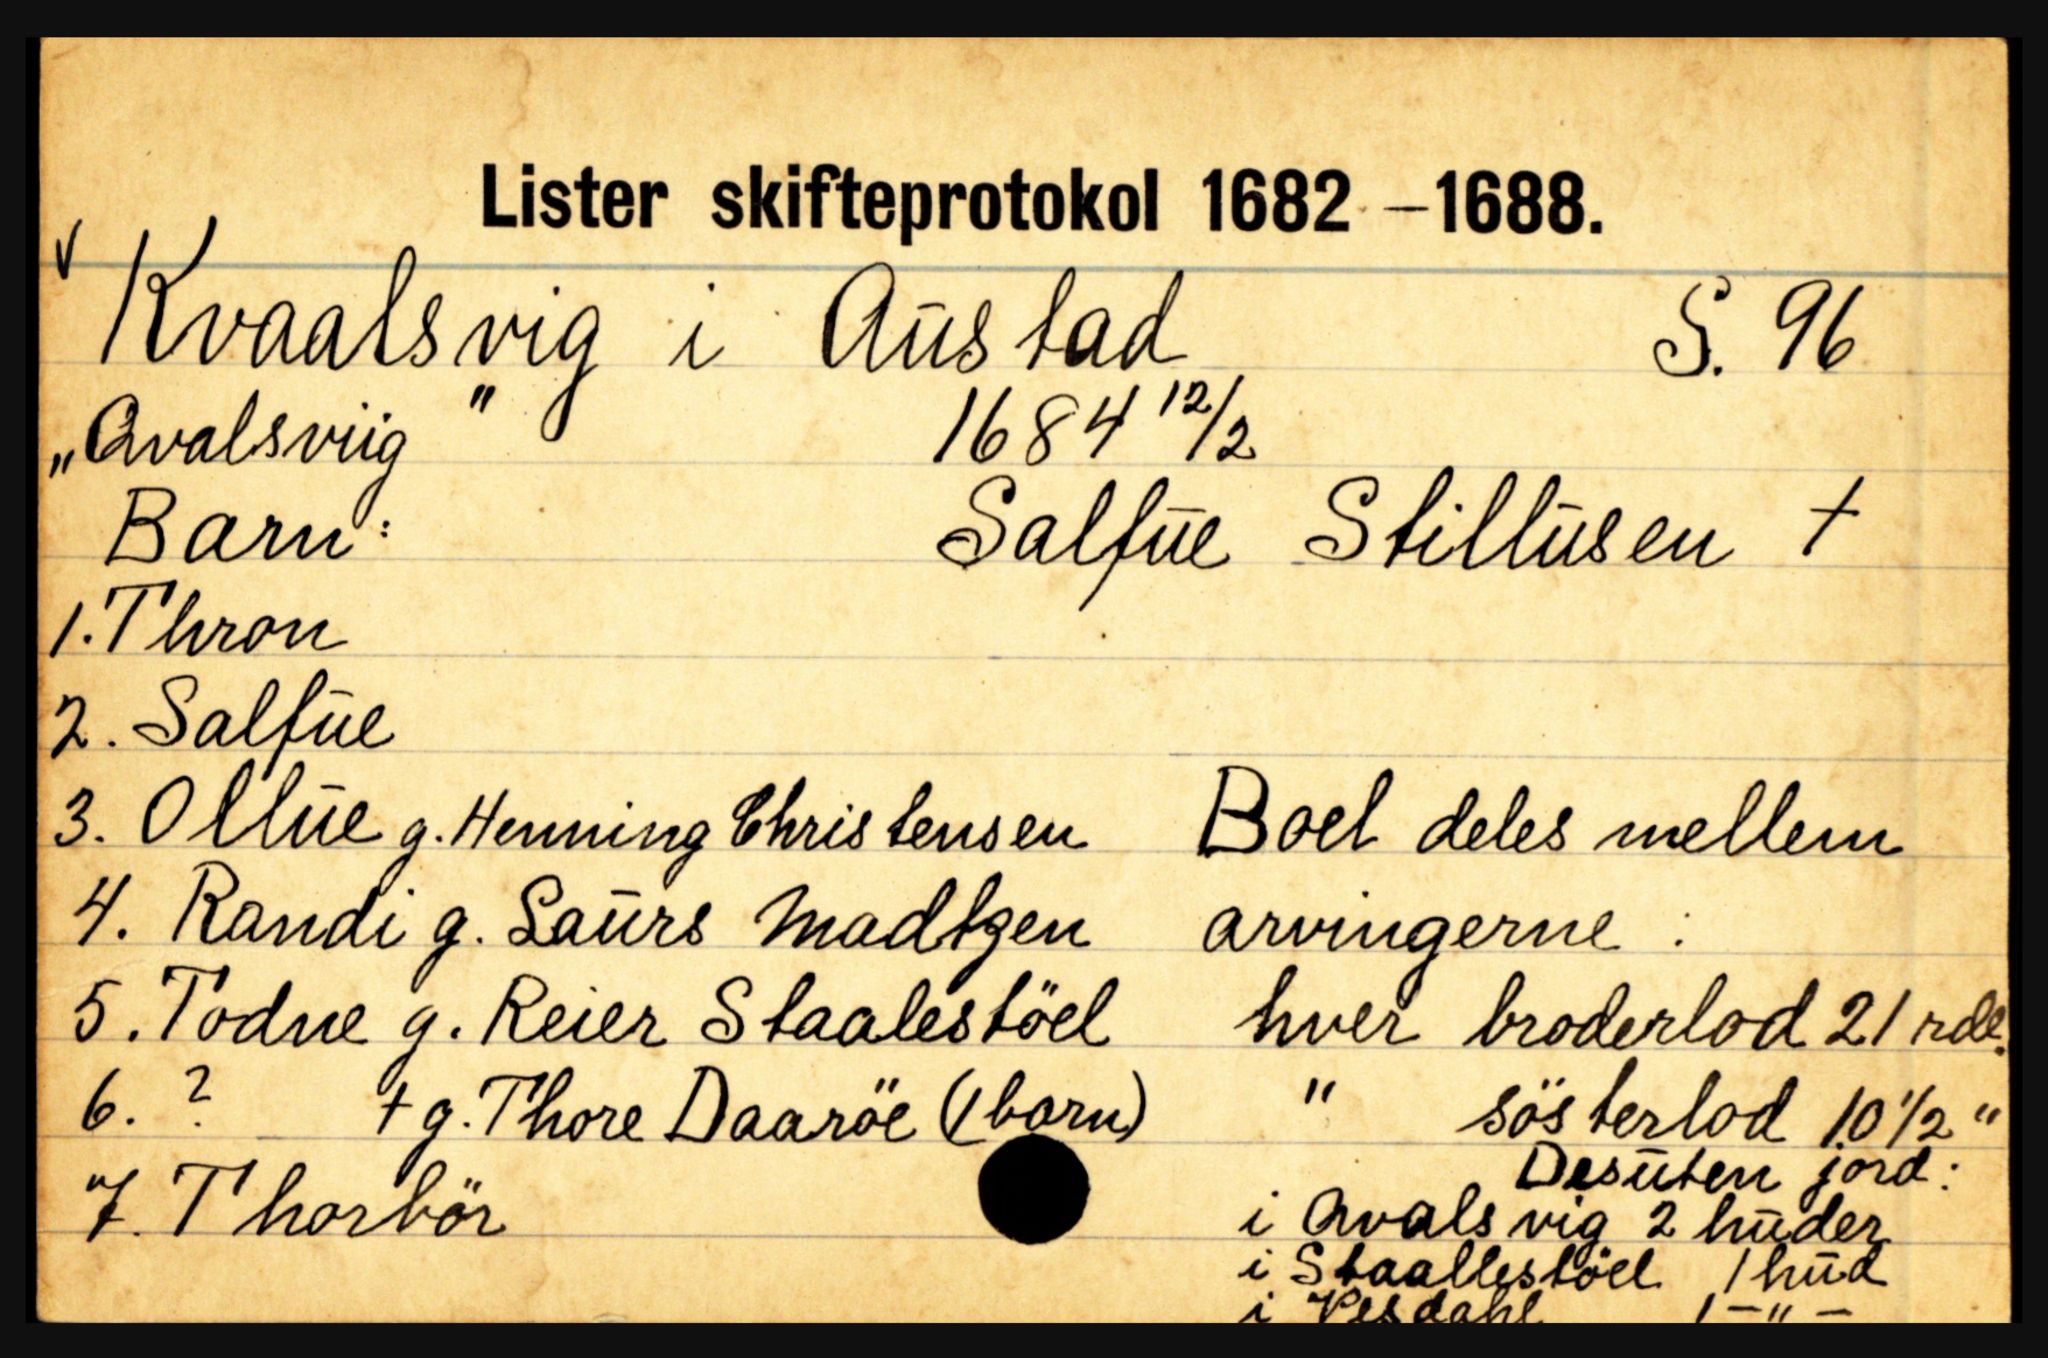 Lister skifteprotokol 1682 – 1688.
v Kvaalsvig i Aūstad S. 96
„Qvalsviig" 1684 12/2
Barn: Salfūe Stillūsen †
1. Thron
2. Salfūe
3. Ollūe g. Henning Christensen
4. Randi g. Laūrs Madtzen
5. Todne g. Reier Staalestöel
6. ? † g. Thore Daaröe (1 barn)
7. Thorbör
Boel deles mellem
arvingerne :
hver broderlod 21 rdl.
" sösterlod 10 1/2 "
Desūten jord:
i Qvalsvig 2 hūder
i Staallestöel 1 hūd
i 1 – " –